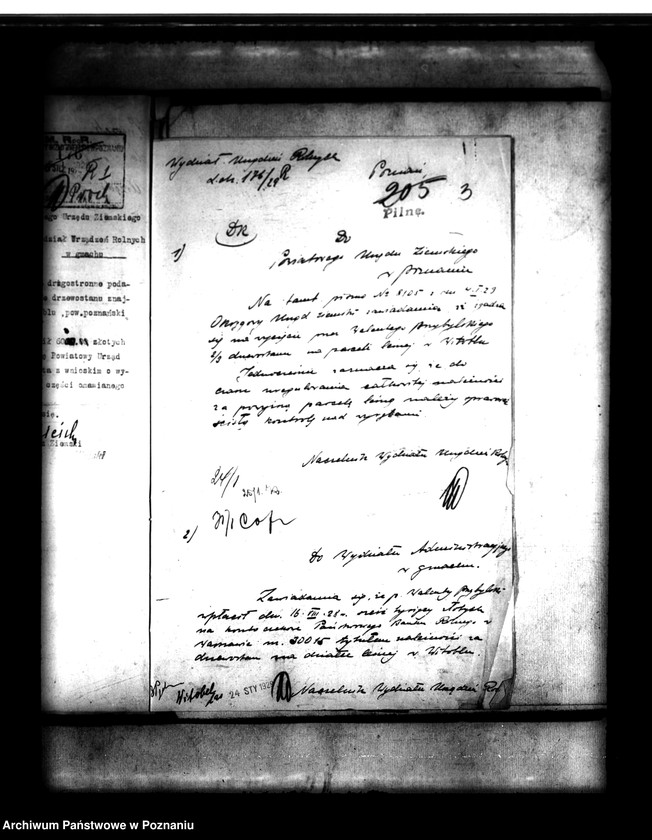 ego Urzędu Ziemskiego
dział Urządzeń Rolnych
w gmachu
drugostronne poda-
drzewostanu znaj-
pow.poznański
złotych
Powiatowy Urząd
z wnioskiem o wy-
części omawianego
się.
Ziemski
Wydział Urządzeń Rolnych
L.dz. 176/29 R
Poznań
205 3
Pilne.
DR
1) Do
Powiatowego Urzędu Ziemskiego
w Poznaniu
Na tamt pismo Nr 8105 z dn. 4.I.29
Okręgowy Urząd Ziemski zawiadamia, że zgadza
się na wycięcie przez Walentego Przybylskiego
2/3 drzewostanu na parceli leśnej w Witoblu
Jednocześnie zaznacza się, że do
czasu uregulowania całkowitej należności
za parcelę leśną należy
ścisłą kontrolę nad wyrębami.
Naczelnik Wydziału Urządzeń Roln
24/1
2)
Do Wydziału Administracyjnego
w gmachu.
Zawiadamia się, że p. Walenty Przybylski
wpłacił dn. 16.VIII.28 r. sześć tysięcy złotych
na konto Państwowego Banku Rolnego w
Warszawie nr. 30015 tytułem należności za
drzewostan na działce leśnej w Witoblu.
Witobel
24 STY 192
Naczelnik Wydziału Urządzeń Rol
Archiwum Państwowe w Poznaniu